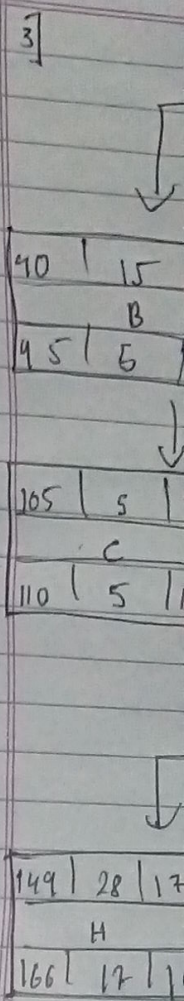 3]
90 | 15
B
95 | 5
105 | 5 |
C
110 | 5 |
149 | 28 | 17
H
166 | 17 |